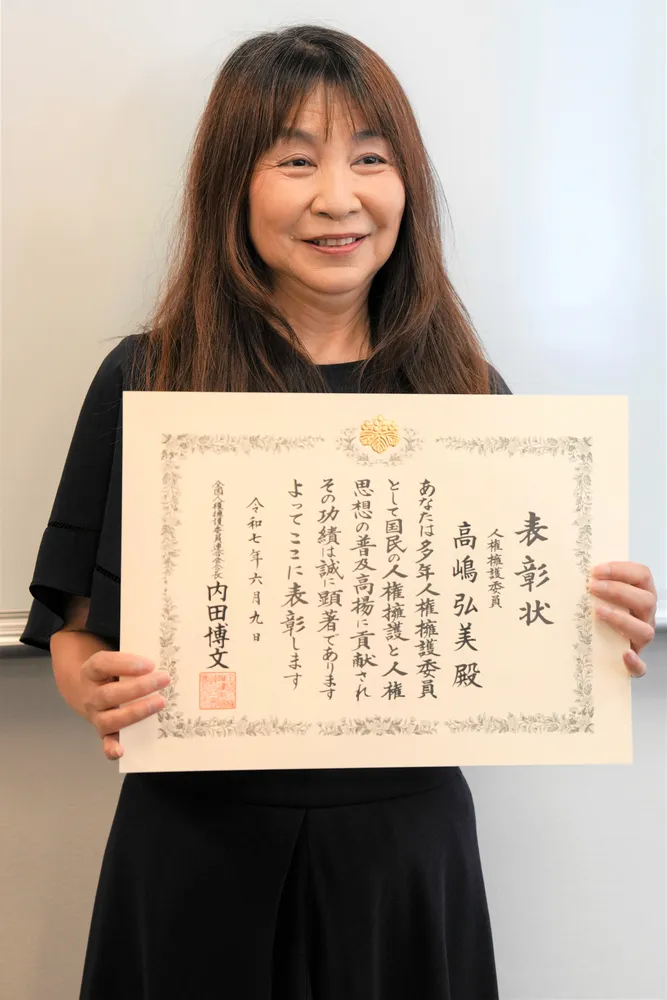 表彰状
人権擁護委員
高嶋弘美殿
あなたは多年人権擁護委員
として国民の人権擁護と人権
思想の普及高揚に貢献され
その功績は誠に顕著であります
よってここに表彰します
令和七年六月九日
全国人権擁護委員連合会長
内田博文